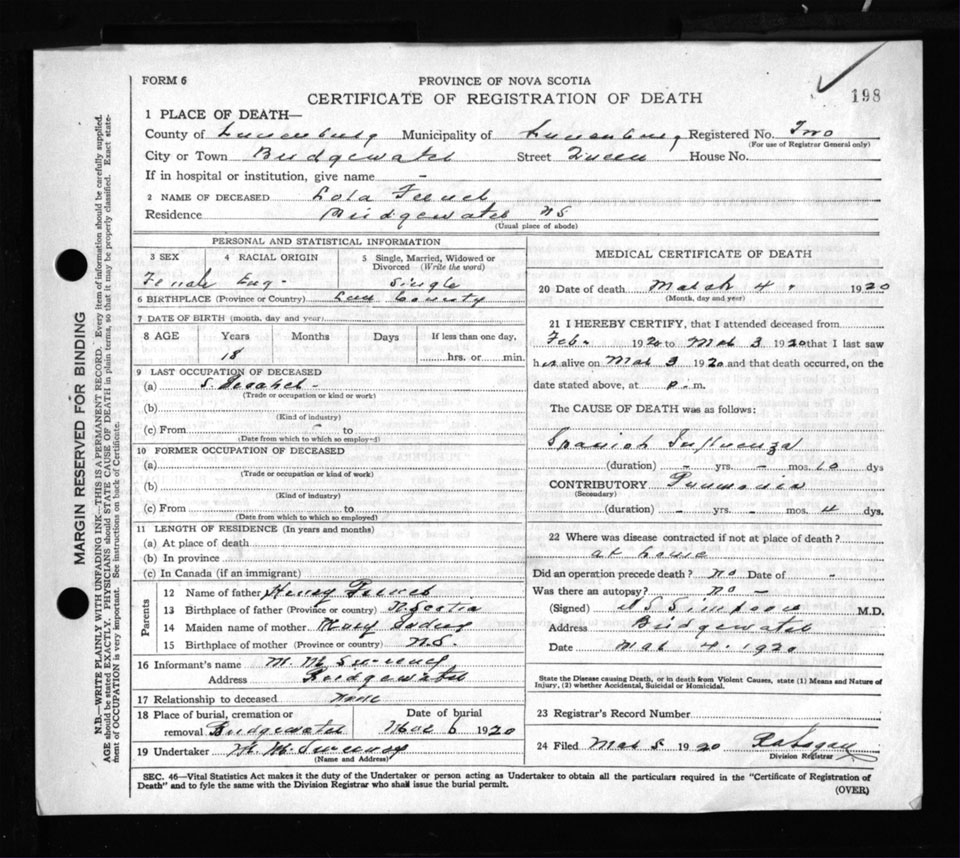 198
FORM 6
PROVINCE OF NOVA SCOTIA
CERTIFICATE OF REGISTRATION OF DEATH
1 PLACE OF DEATH—
County of Lunenburg Municipality of Lunenburg Registered No. Two
(For use of Registrar General only)
City or Town Bridgewater Street Queen House No.
If in hospital or institution, give name -
2 NAME OF DECEASED Lola
Residence Bridgewater NS
(Usual place of abode)
PERSONAL AND STATISTICAL INFORMATION
3 SEX 4 RACIAL ORIGIN 5 Single, Married, Widowed or Divorced (Write the word)
Female Eng- Single
6 BIRTHPLACE (Province or Country) Lun County
7 DATE OF BIRTH (month, day and year)
8 AGE Years Months Days If less than one day,
18 hrs. or min.
9 LAST OCCUPATION OF DECEASED
(a) S. Teacher -
(Trade or occupation or kind or work)
(b)
(Kind of industry)
(c) From to
(Date from which to so employed)
10 FORMER OCCUPATION OF DECEASED
(a)
(Trade or occupation or kind of work)
(b)
(Kind of industry)
(c) From to
(Date from which to which so employed)
11 LENGTH OF RESIDENCE (In years and months)
(a) At place of death
(b) In province
(c) In Canada (if an immigrant)
Parents
12 Name of father Henry
13 Birthplace of father (Province or country) N Scotia
14 Maiden name of mother Mary
15 Birthplace of mother (Province or country) N.S.
16 Informant's name
Address Bridgewater
17 Relationship to deceased None
18 Place of burial, cremation or removal Bridgewater Date of burial Mar 6 1920
19 Undertaker
(Name and Address)
MEDICAL CERTIFICATE OF DEATH
20 Date of death March 4 . 1920
(Month, day and year)
21 I HEREBY CERTIFY, that I attended deceased from
Feb. 1920 to Mar 3 1920 that I last saw
her alive on Mar 3 1920 and that death occurred, on the
date stated above, at p. m.
The CAUSE OF DEATH was as follows:
Spanish Influenza
(duration) - yrs. - mos. 10 dys
CONTRIBUTORY Pneumonia
(Secondary)
(duration) - yrs. - mos. 4 dys.
22 Where was disease contracted if not at place of death?
at home
Did an operation precede death? No Date of -
Was there an autopsy? no -
(Signed) Simpson M.D.
Address Bridgewater
Date Mar 4. 1920
State the Disease causing Death, or in death from Violent Causes, state (1) Means and Nature of
Injury, (2) whether Accidental, Suicidal or Homicidal.
23 Registrar's Record Number
24 Filed Mar 5 1920
Division Registrar
SEC. 46—Vital Statistics Act makes it the duty of the Undertaker or person acting as Undertaker to obtain all the particulars required in the "Certificate of Registration of
Death" and to fyle the same with the Division Registrar who shall issue the burial permit.
(OVER)
MARGIN RESERVED FOR BINDING
N.B.—WRITE PLAINLY WITH UNFADING INK—THIS IS A PERMANENT RECORD. Every item of information should be carefully supplied.
AGE should be stated EXACTLY. PHYSICIANS should STATE CAUSE OF DEATH in plain terms, so that it may be properly classified. Exact state-
ment of OCCUPATION is very important. See instructions on back of Certificate.